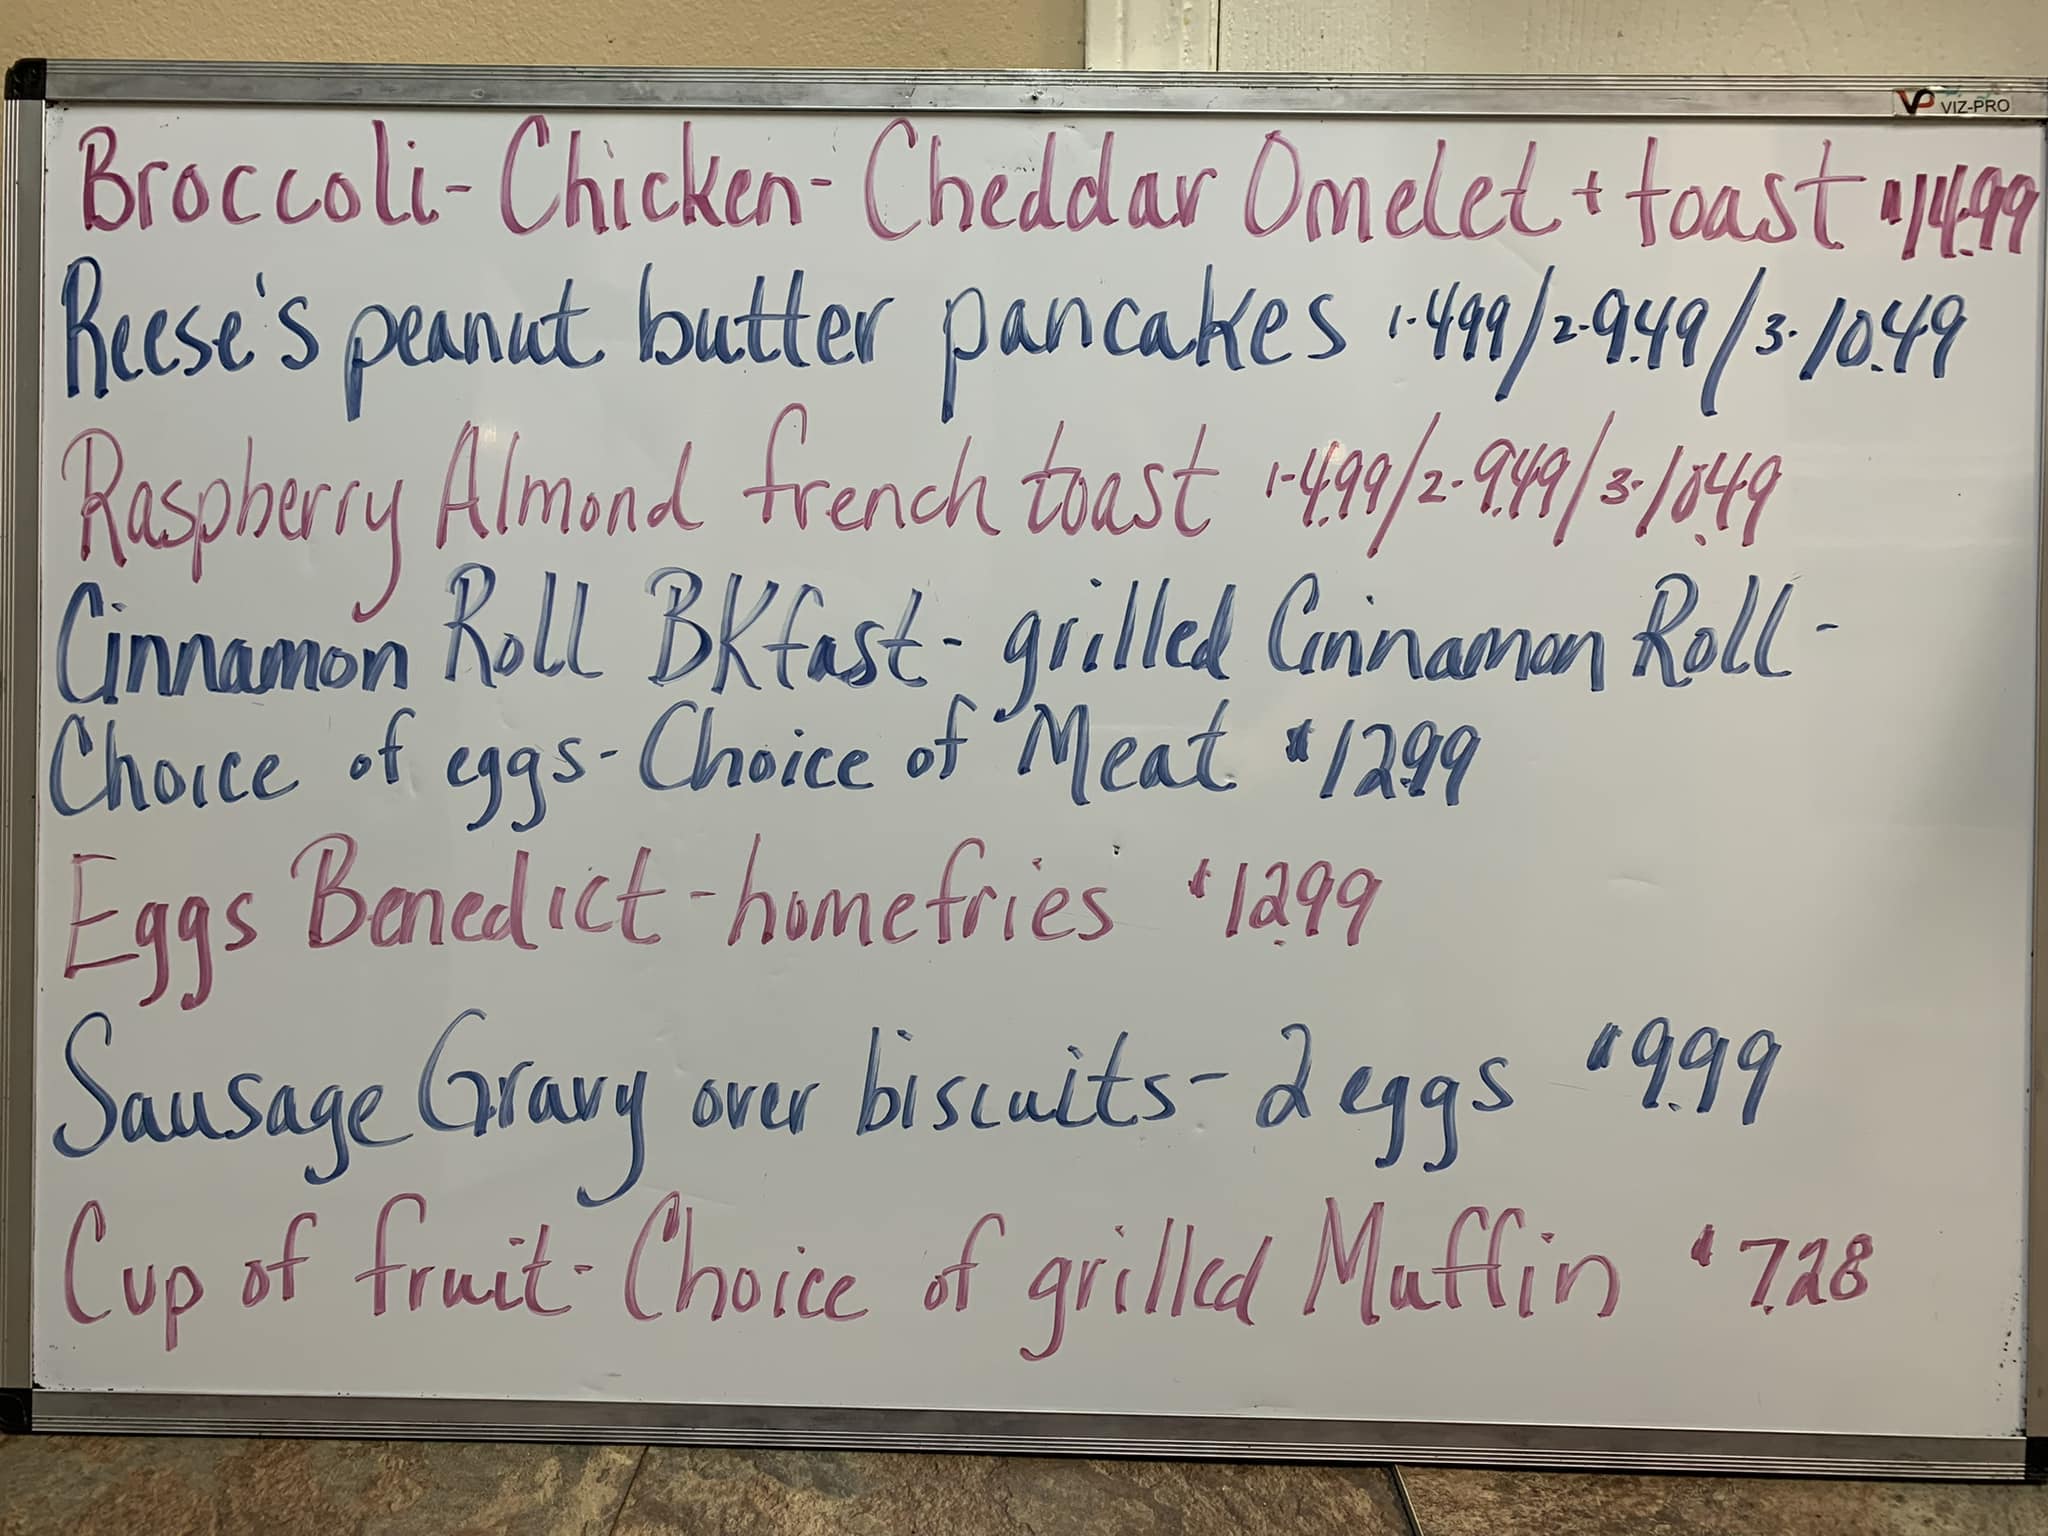 VP VIZ-PRO
Broccoli-Chicken-Cheddar Omelet + toast $14.99
Reese's peanut butter pancakes 1-4.99/2-9.49/3-10.49
Raspberry Almond french toast 1-4.99/2-9.49/3-10.49
Cinnamon Roll BKfast- grilled Cinnamon Roll-
Choice of eggs-Choice of Meat $12.99
Eggs Benedict-homefries $12.99
Sausage Gravy over biscuits-2 eggs $9.99
Cup of fruit-Choice of grilled Muffin $7.28